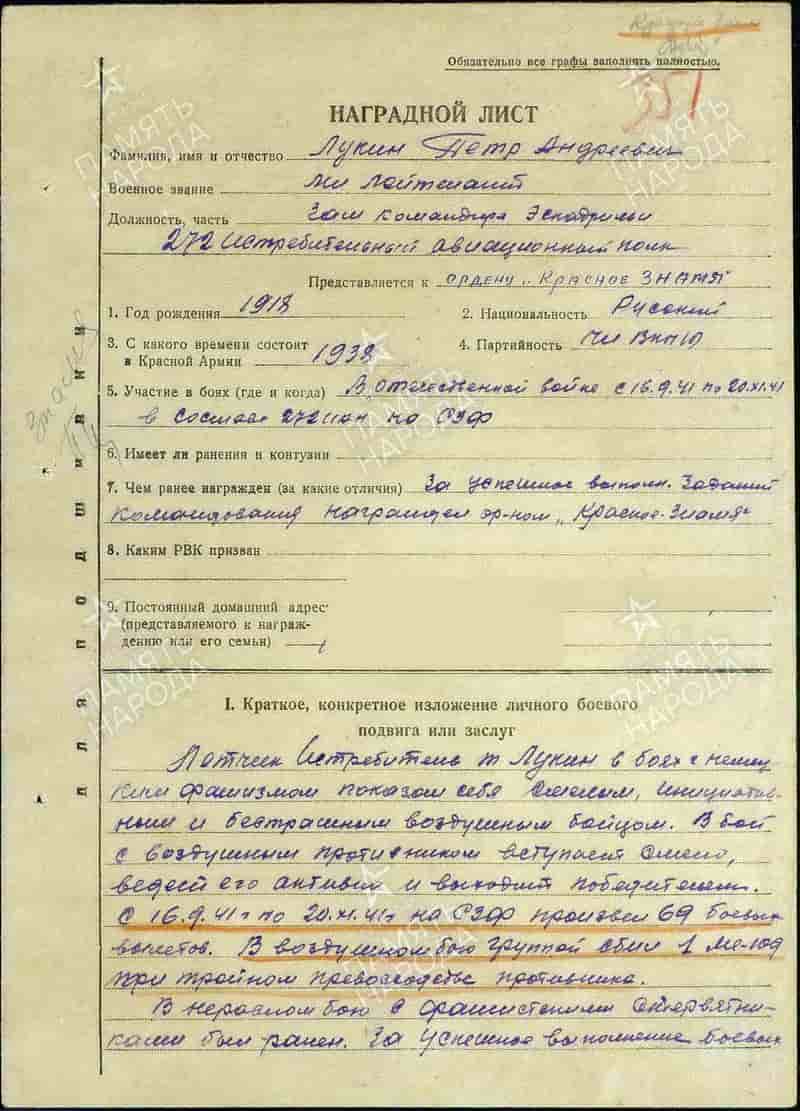 Обязательно все графы заполнять полностью.
351
НАГРАДНОЙ ЛИСТ
Фамилия, имя и отчество Лукин Петр Андреевич
Военное звание Мл лейтенант
Должность, часть Зам командира Эскадрильи
272 Истребительный авиационный полк
Представляется к ордену „Красное ЗНАМЯ"
1. Год рождения 1918 2. Национальность Русский
3. С какого времени состоит
в Красной Армии 1938 4. Партийность Чл ВКП(б)
5. Участие в боях (где и когда) В отечественной войне с 16.9.41 по 20.XI.41
в составе 272 иап на СЗФ
6. Имеет ли ранения и контузии
7. Чем ранее награжден (за какие отличия) За успешное выполн. заданий
командования награжден ор-ном „Красное-Знамя"
8. Каким РВК призван
9. Постоянный домашний адрес
(представляемого к награж-
дению или его семьи)
Для подшивки
I. Краткое, конкретное изложение личного боевого
подвига или заслуг
Летчик Истребитель т Лукин в боях с немец
ким фашизмом показал себя смелым, инициатив-
ным и бестрашным воздушным бойцом. В бой
с воздушным противником вступает смело,
ведет его активно и выходит победителем.
С 16.9.41г по 20.XI.41г на СЗФ произвел 69 боевых
вылетов. В воздушном бою группой сбил 1 Ме-109
при тройном превосходстве противника.
В неравном бою с фашистскими стервятни-
ками был ранен. За успешное выполнение боевых
ПАМЯТЬ
НАРОДА